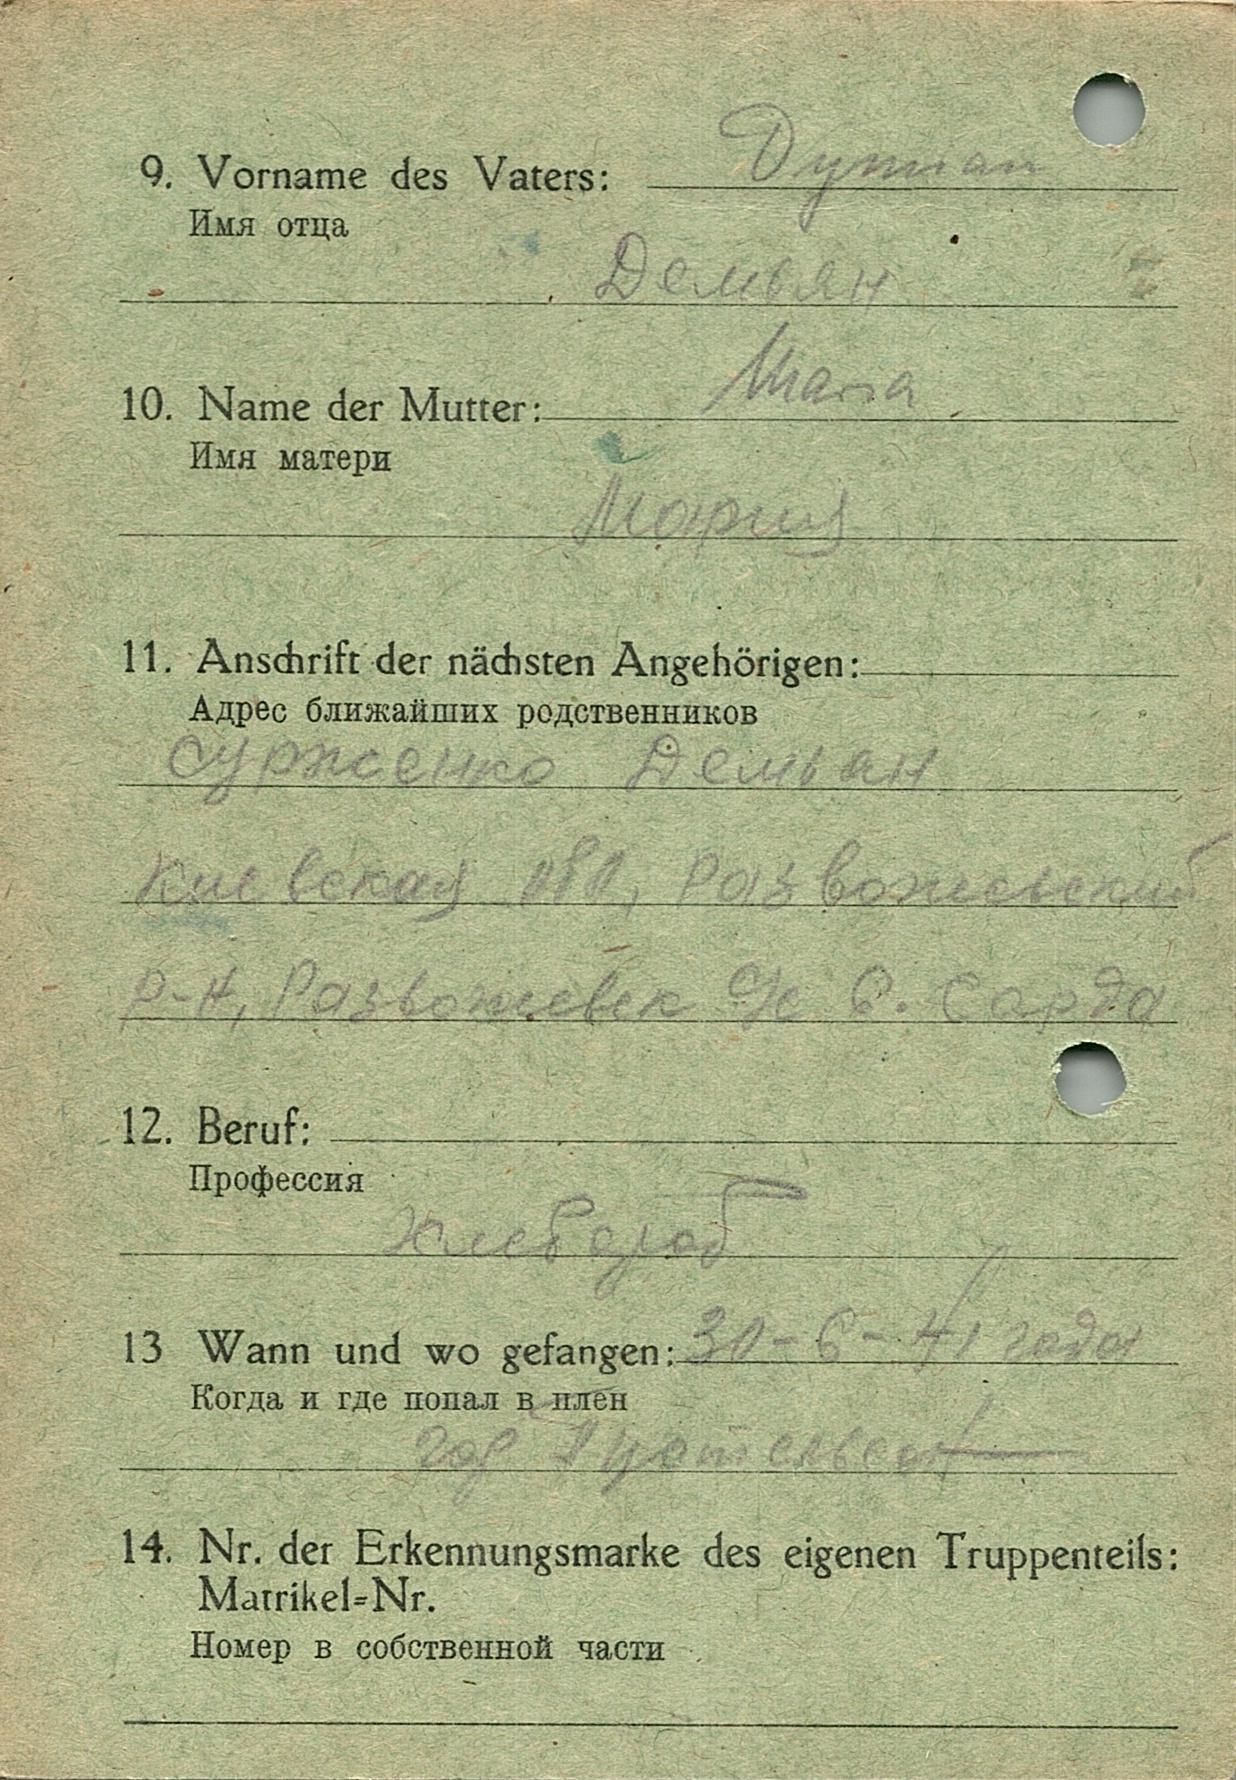 9. Vorname des Vaters: Dymian
Имя отца
Демьян
10. Name der Mutter: Maria
Имя матери
Мария
11. Anschrift der nächsten Angehörigen:
Адрес ближайших родственников
Сурженко Демьян
Киевская обл, Разважевский
р-н, с.
12. Beruf:
Профессия
Хлебороб
13 Wann und wo gefangen: 30-6-41 года
Когда и где попал в плен
гор
14. Nr. der Erkennungsmarke des eigenen Truppenteils:
Matrikel=Nr.
Номер в собственной части